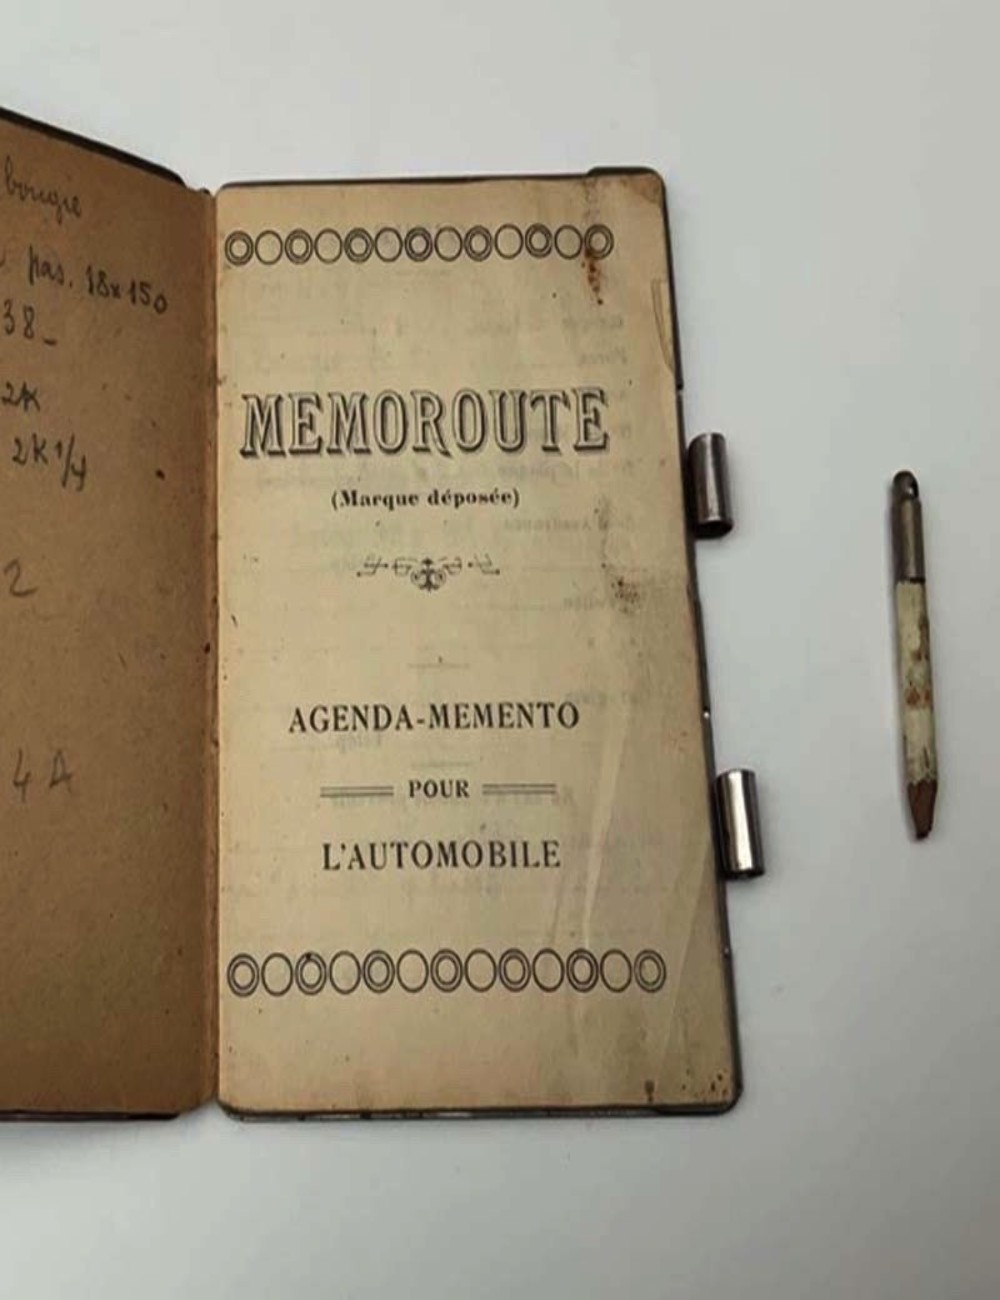 bougie
pas. 18x150
38_
2K
2K 1/4
2
4 A
MEMOROUTE
(Marque déposée)
AGENDA-MEMENTO
POUR
L'AUTOMOBILE